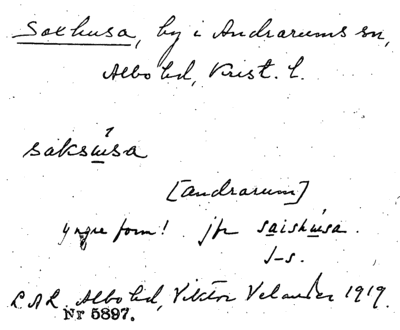 Saxhusa, by i Andrarums sn,
Albo hd, Krist. l.
saksu̲sa
[Andrarum]
yngre form! jfr saishu̲sa.
J-s.
L.A.L. Albo hd, Viktor Velander 1919.
Nr 5897.